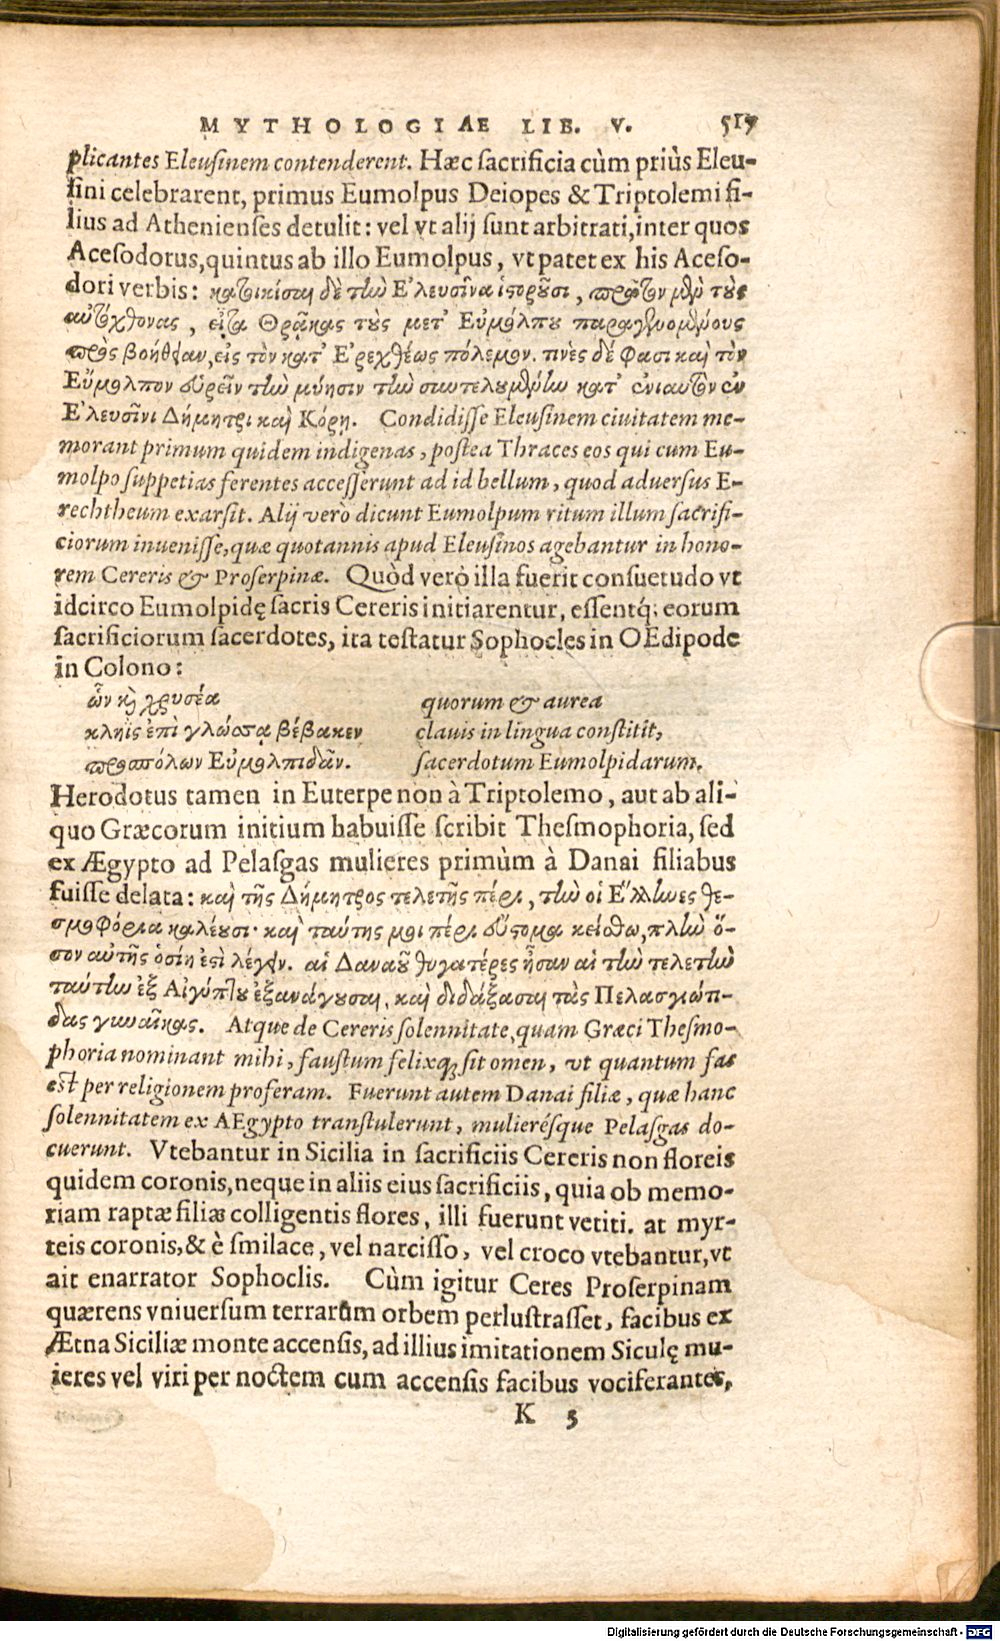 MYTHOLOGIAE LIB. V. 517
plicantes Eleusinem contenderent. Hæc sacrificia cùm priùs Eleu-
sini celebrarent, primus Eumolpus Deiopes & Triptolemi fi-
lius ad Athenienses detulit: vel vt alij sunt arbitrati, inter quos
Acesodorus, quintus ab illo Eumolpus, vt patet ex his Aceso-
dori verbis: κατοικίσαι δὲ τὴν Ἐλευσῖνα ἱστοροῦσι, πρῶτον μὲν τοὺς
αὐτόχθονας, εἶτα Θρᾷκας τοὺς μετ' Εὐμόλπου παραγενομένους
πρὸς βοήθειαν, εἰς τὸν κατ' Ἐρεχθέως πόλεμον. τινὲς δέ φασι καὶ τὸν
Εὔμολπον εὑρεῖν τὴν μύησιν τὴν συντελουμένην κατ' ἐνιαυτὸν ἐν
Ἐλευσῖνι Δήμητρι καὶ Κόρῃ. Condidisse Eleusinem ciuitatem me-
morant primum quidem indigenas, postea Thraces eos qui cum Eu-
molpo suppetias ferentes accesserunt ad id bellum, quod aduersus E-
rechtheum exarsit. Alij verò dicunt Eumolpum ritum illum sacrifi-
ciorum inuenisse, quæ quotannis apud Eleusinos agebantur in hono-
rem Cereris & Proserpinæ. Quòd verò illa fuerit consuetudo vt
idcirco Eumolpidę sacris Cereris initiarentur, essentq́; eorum
sacrificiorum sacerdotes, ita testatur Sophocles in OEdipode
in Colono:
ὧν καὶ χρυσέα quorum & aurea
κληῒς ἐπὶ γλώσσᾳ βέβακεν clauis in lingua constitit,
προσπόλων Εὐμολπιδᾶν. sacerdotum Eumolpidarum.
Herodotus tamen in Euterpe non à Triptolemo, aut ab ali-
quo Græcorum initium habuisse scribit Thesmophoria, sed
ex Ægypto ad Pelasgas mulieres primùm à Danai filiabus
fuisse delata: καὶ τῆς Δήμητρος τελετῆς πέρι, τὴν οἱ Ἕλληνες θε-
σμοφόρια καλέουσι· καὶ ταύτης μοι πέρι εὔστομα κείσθω, πλὴν ὅ-
σον αὐτῆς ὁσίη ἐστὶ λέγειν. αἱ Δαναοῦ θυγατέρες ἦσαν αἱ τὴν τελετὴν
ταύτην ἐξ Αἰγύπτου ἐξανάγουσαι, καὶ διδάξασαι τὰς Πελασγιώτι-
δας γυναῖκας. Atque de Cereris solennitate, quam Græci Thesmo-
phoria nominant mihi, faustum felixq; sit omen, vt quantum fas
est per religionem proferam. Fuerunt autem Danai filiæ, quæ hanc
solennitatem ex AEgypto transtulerunt, mulierésque Pelasgas do-
cuerunt. Vtebantur in Sicilia in sacrificiis Cereris non floreis
quidem coronis, neque in aliis eius sacrificiis, quia ob memo-
riam raptæ filiæ colligentis flores, illi fuerunt vetiti. at myr-
teis coronis, & è smilace, vel narcisso, vel croco vtebantur, vt
ait enarrator Sophoclis. Cùm igitur Ceres Proserpinam
quærens vniuersum terrarum orbem perlustrasset, facibus ex
Ætna Siciliæ monte accensis, ad illius imitationem Siculę mu-
ieres vel viri per noctem cum accensis facibus vociferantes,
K 5
Digitalisierung gefördert durch die Deutsche Forschungsgemeinschaft - DFG